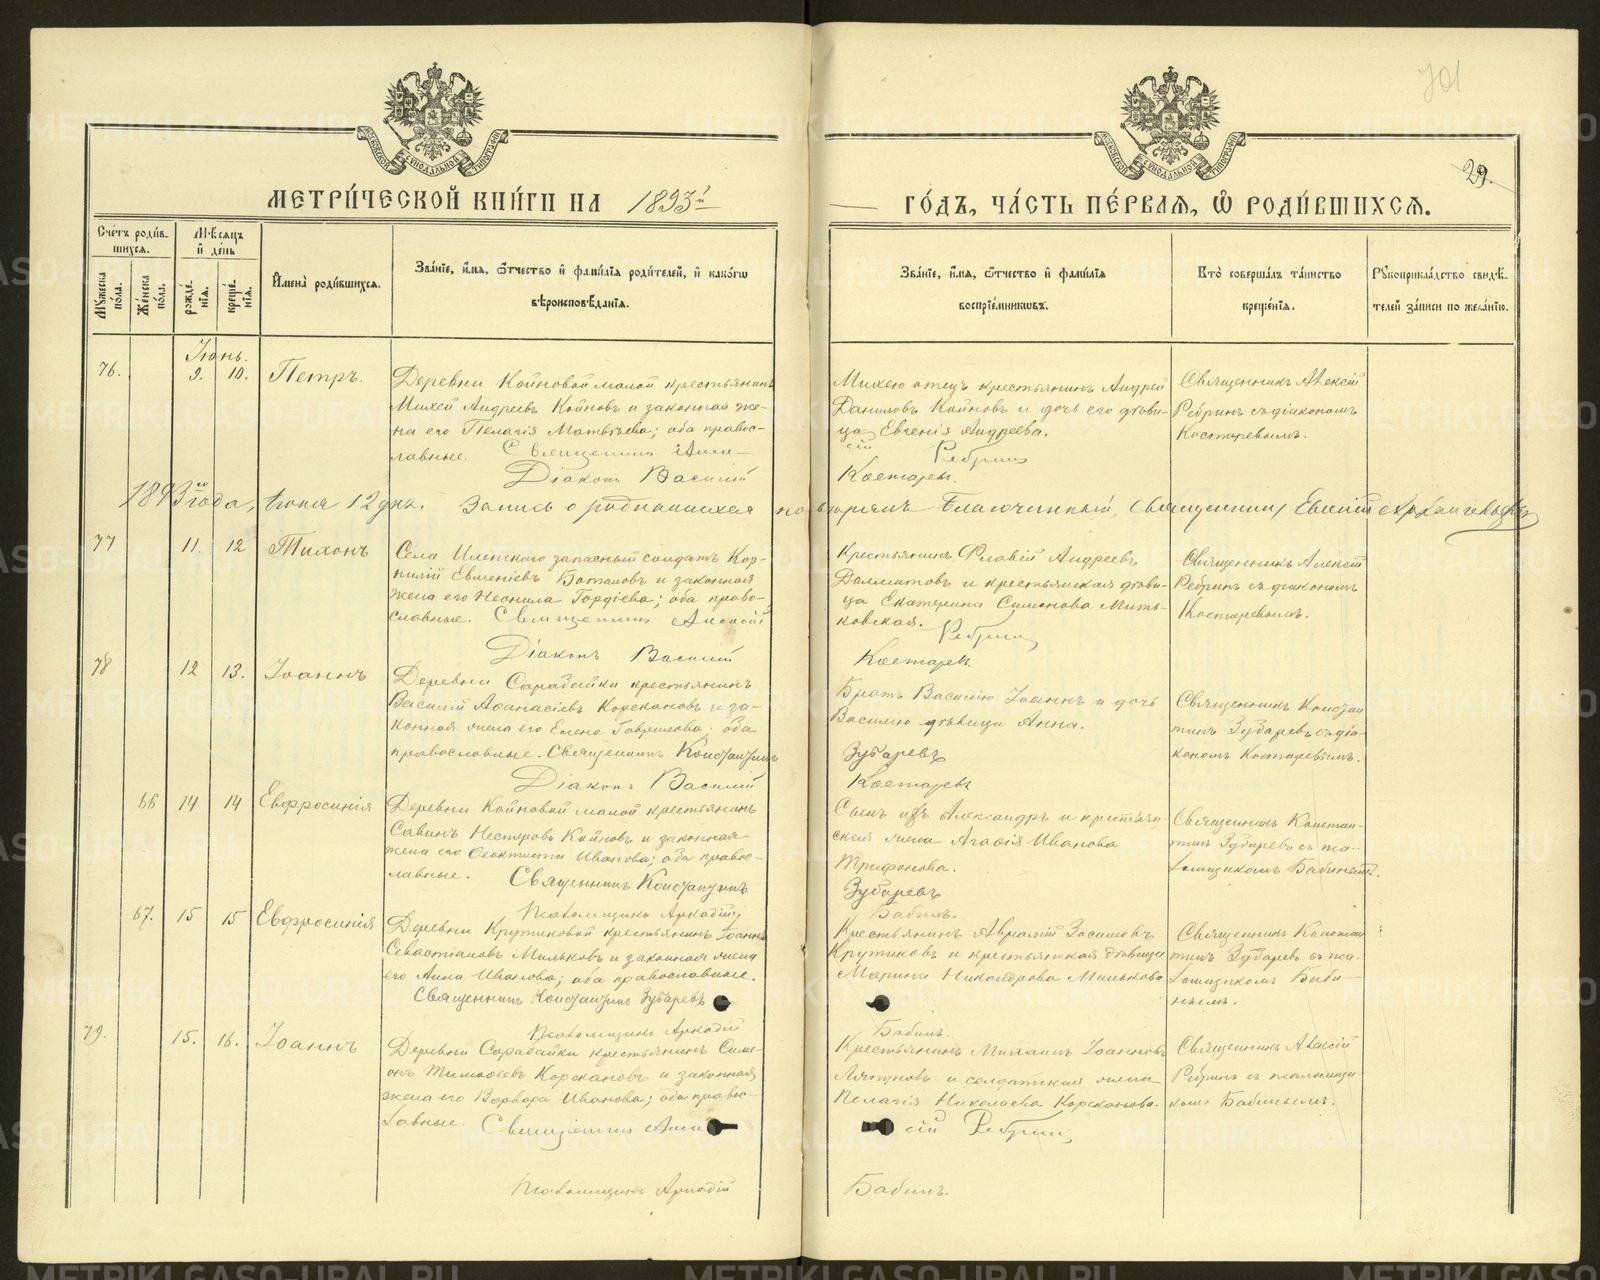 701
29.
МОСКОВСКОЙ СѴНОДАЛЬНОЙ ТИПОГРАФІИ
МОСКОВСКОЙ СѴНОДАЛЬНОЙ ТИПОГРАФІИ
МЕТРИ́ЧЕСКОЙ КНИ́ГИ НА 1893й
ГО́ДЪ, ЧА́СТЬ ПЕ́РВАЯ, Ѽ РОДИ́ВШИХСЯ.
Сче́тъ роди́в-
шихся.
Мѣсяцъ
и де́нь
Му́жеска по́ла.
Же́нска по́ла.
рожде́нїя.
креще́нїя.
Имена̀ роди́вшихся.
Зва́нїе, и́мя, ѻ́тчество и фами́лїя роди́телей, и како́гѡ
вѣроисповѣ́данїя.
Зва́нїе, и́мя, ѻ́тчество и фами́лїя
воспрїе́мникѡвъ.
Кто̀ соверша́лъ та́инство
креще́нїя.
Рꙋкоприкла́дство свидѣ́-
телей за́писи по жела́нїю.
Іюнь.
76.
9.
10.
Петръ.
Деревни Койновой малой крестьянинъ
Михей Андреевъ Койновъ и законная же-
на его Пелагія Матвѣева; оба правос-
лавные. Священникъ Алек-
Діаконъ Василій
Михею отецъ крестьянинъ Андрей
Даниловъ Койновъ и дочь его дѣви-
ца Евгенія Андреева.
сій Ребринъ
Костаревъ.
Священникъ Алексій
Ребринъ съ діакономъ
Костаревымъ.
1893го года, іюня 12 дня. Запись о родившихся повѣрялъ Благочинный, Священникъ Евгеній
77
11.
12
Тихонъ
Села Иленского запасный солдатъ Кор-
нилій Евменіевъ Боталовъ и законная
жена его Неонила Гордіева; оба право-
славные. Священникъ Алексій
Діаконъ Василій
Крестьянинъ Флавій Андреевъ
Далматовъ и крестьянская дѣви-
ца Екатерина Симонова Мить-
ковская. Ребринъ
Костаревъ
Священникъ Алексій
Ребринъ съ діакономъ
Костаревымъ.
78
12
13.
Іоаннъ
Деревни Сарабайки крестьянинъ
Василій Аѳанасіевъ Корекановъ и за-
конная жена его Елена Гаврилова; оба
православные. Священникъ Константинъ
Діаконъ Василій
Братъ Василію Іоаннъ и дочь
Василію дѣвица Анна.
Зубаревъ
Костаревъ
Священникъ Констан
тинъ Зубаревъ съ діа-
кономъ Костаревымъ.
66
14
14
Евфросинія
Деревни Койновой малой крестьянинъ
Савинъ Нестеровъ Койновъ и законная
жена его Ѳеоктиста Иванова; оба правос-
лавные. Священникъ Константинъ
Псаломщикъ Аркадій
Сынъ ихъ Александръ и крестьян
ская жена Агафія Иванова
Трифонова.
Зубаревъ
Бабинъ.
Священникъ Констан-
тинъ Зубаревъ съ пса-
ломщикомъ Бабинымъ.
67.
15
15
Евфросинія
Деревни Крутиковой крестьянинъ Іоаннъ
Севастіановъ Мильковъ и законная жена
его Анна Иванова; оба православные.
Священникъ Константинъ Зубаревъ
Псаломщикъ Аркадій
Крестьянинъ Аврамій Зосимовъ
Крутиковъ и крестьянская дѣвица
Марина Никандрова Милькова
Бабинъ.
Священникъ Констан
тинъ Зубаревъ съ пса-
ломщикомъ Баби-
нымъ.
79.
15.
16.
Іоаннъ
Деревни Сарабайки крестьянинъ Симе-
онъ Тимоѳеевъ Корекановъ и законная
жена его Варвара Иванова; оба правос-
лавные. Священникъ Алек
Псаломщикъ Аркадій
Крестьянинъ Михаилъ Іоанновъ
Ляпуновъ и солдатская жена
Пелагія Николаева Кореканова.
сій Ребринъ
Бабинъ.
Священникъ Алексій
Ребринъ съ псаломщи-
комъ Бабинымъ.
METRIKI.GASO-URAL.RU